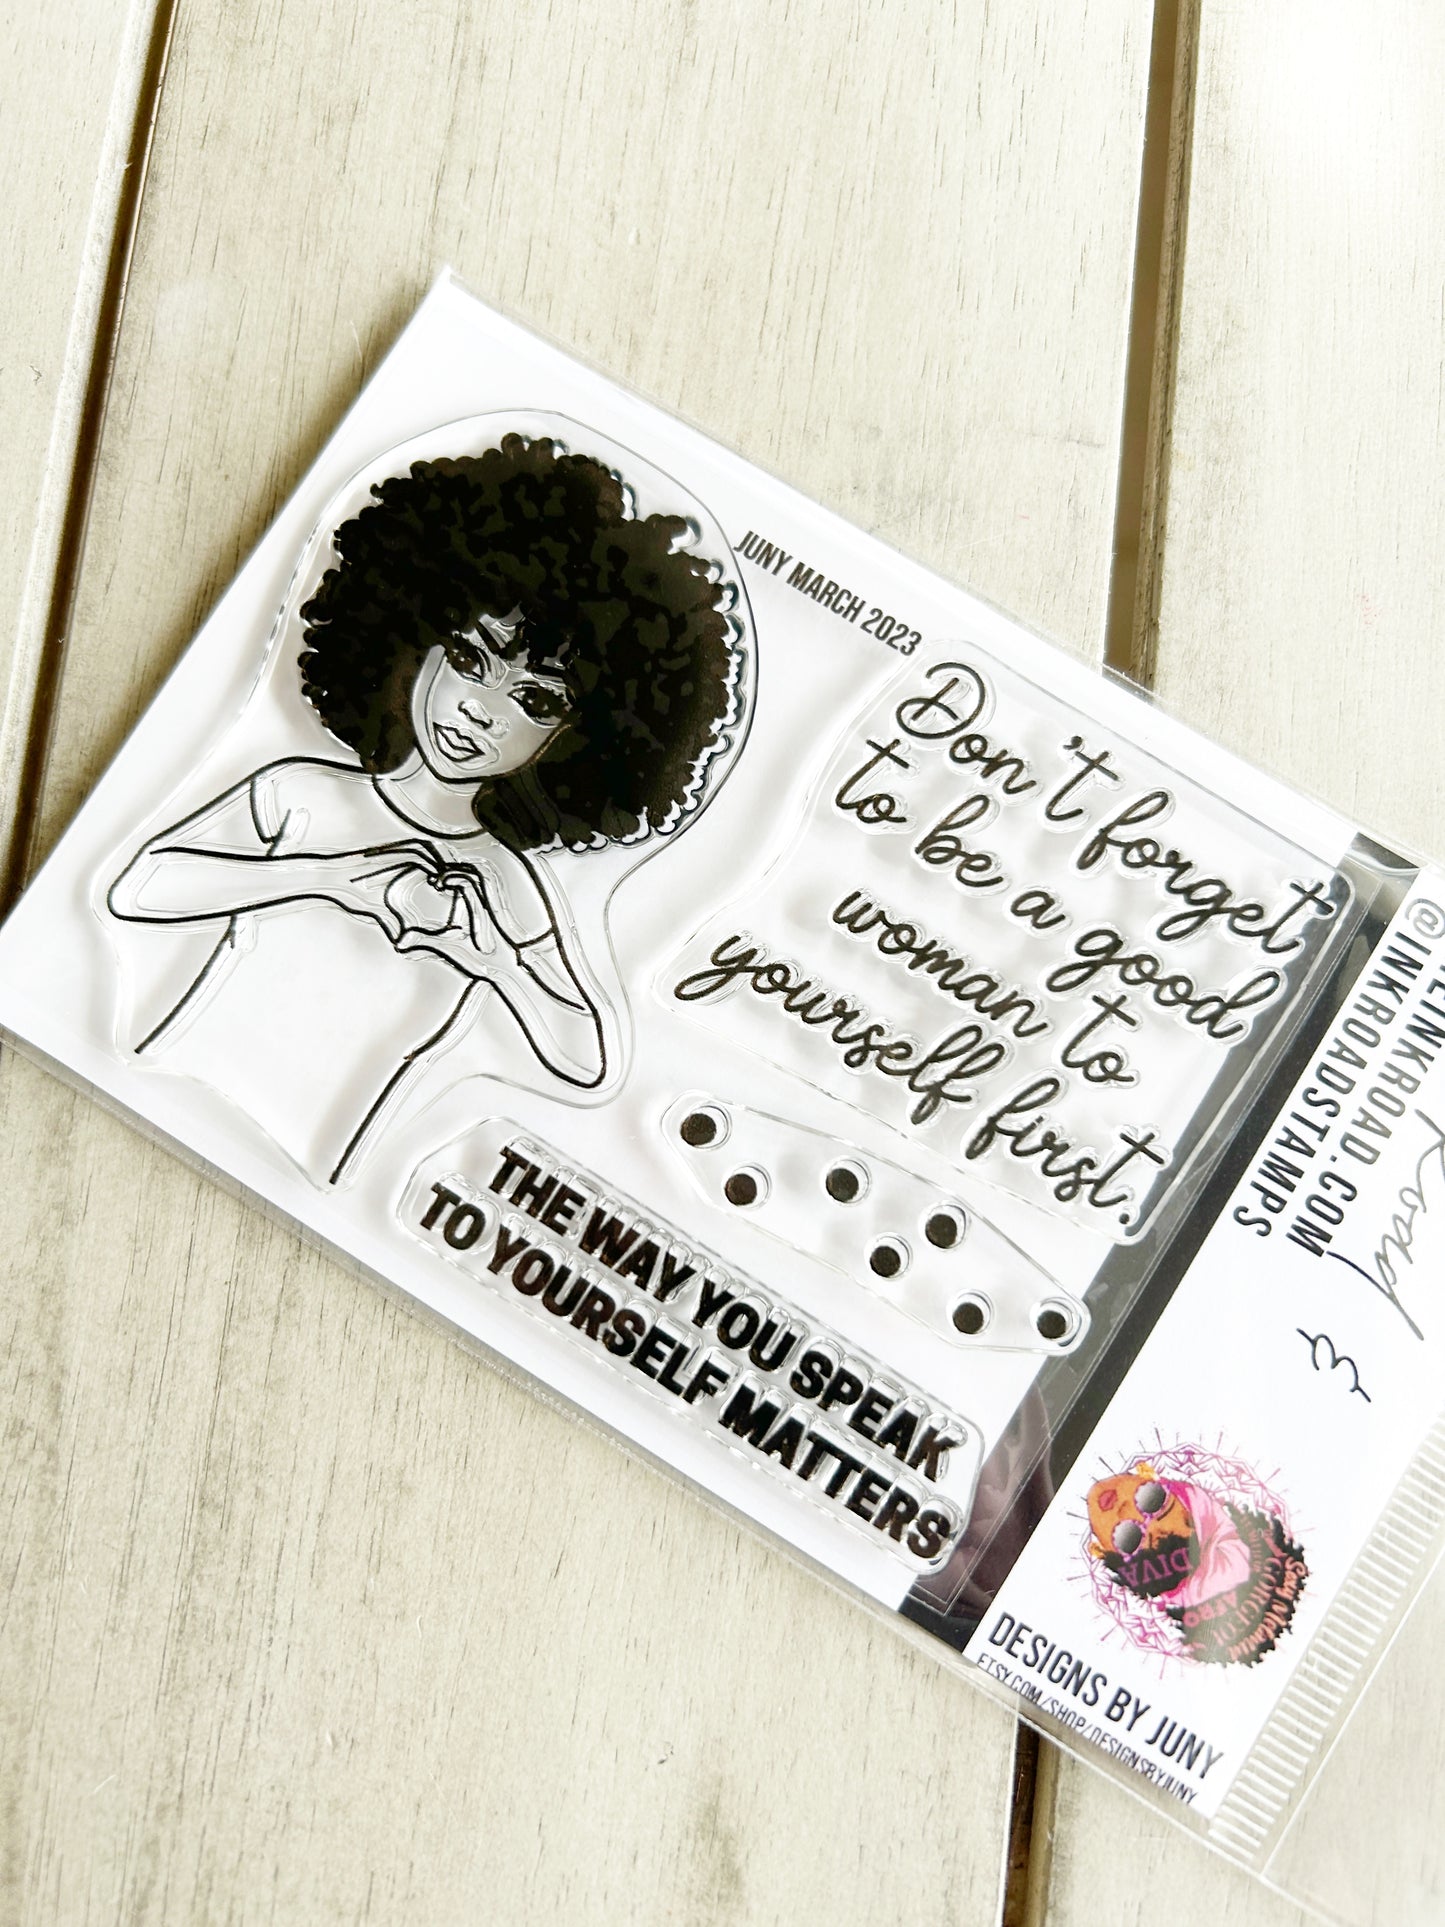 JUNY MARCH 2023
Don't forget
to be a good
woman to
yourself first.
THE WAY YOU SPEAK
TO YOURSELF MATTERS
INKROAD.COM
@INKROADSTAMPS
Road
&
DIVA
AFRO
DESIGNS BY JUNY
ETSY.COM/SHOP/DESIGNSBYJUNY